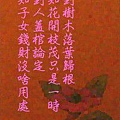 對樹木落葉歸根
如花開枝茂只是一時
對人蓋棺論定
知子女錢財沒啥用處